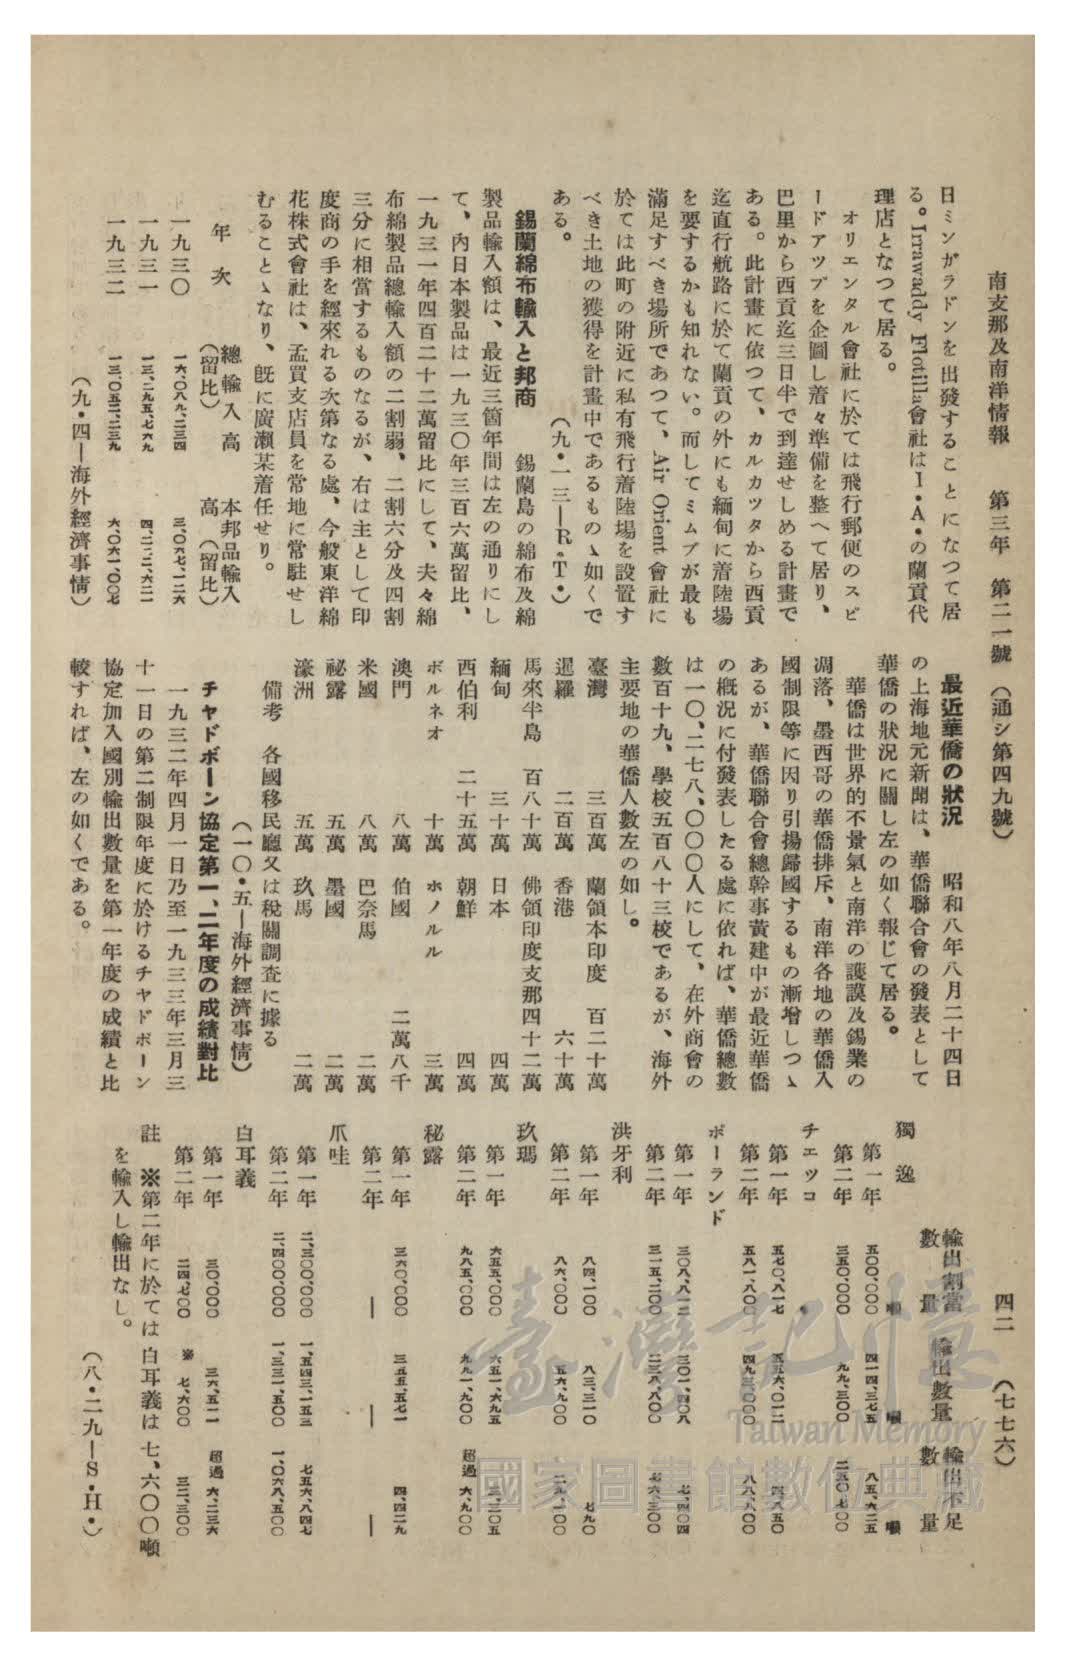 南支那及南洋情報　第三年　第二一號　（通シ第四九號）　四二　（七七六）
日ミンガラドンを出發することになつて居
る。Irrawaddy Flotilla會社はI・A・の蘭貢代
理店となつて居る。
オリエンタル會社に於ては飛行郵便のスピ
ードアップを企圖し着々準備を整へて居り、
巴里から西貢迄三日半で到達せしめる計畫で
ある。此計畫に依つて、カルカツタから西貢
迄直行航路に於て蘭貢の外にも緬甸に着陸場
を要するかも知れない。而してミムブが最も
滿足すべき場所であつて、Air Orient會社に
於ては此町の附近に私有飛行着陸場を設置す
べき土地の獲得を計畫中であるものゝ如くで
ある。　（九・一三―R・T・）
錫蘭綿布輸入と邦商　錫蘭島の綿布及綿
製品輸入額は、最近三箇年間は左の通りにし
て、內日本製品は一九三〇年三百六萬留比、
一九三一年四百二十二萬留比にして、夫々綿
布綿製品總輸入額の二割弱、二割六分及四割
三分に相當するものなるが、右は主として印
度商の手を經來れる次第なる處、今般東洋綿
花株式會社は、孟買支店員を常地に常駐せし
むることゝなり、旣に廣瀬某着任せり。
年次　總輸入高（留比）　本邦品輸入高（留比）
一九三〇　一六、〇八九、二三四　三、〇六七、一二六
一九三一　一三、二九五、七六九　四、二二二、六二一
一九三二　一三、〇五二、二三九　六、〇六一、〇〇七
（九・四―海外經濟事情）
最近華僑の狀況　昭和八年八月二十四日
の上海地元新聞は、華僑聯合會の發表として
華僑の狀況に關し左の如く報じて居る。
華僑は世界的不景氣と南洋の護謨及錫業の
凋落、墨西哥の華僑排斥、南洋各地の華僑入
國制限等に因り引揚歸國するもの漸增しつゝ
あるが、華僑聯合會總幹事黃建中が最近華僑
の槪況に付發表したる處に依れば、華僑總數
は一〇、二七八、〇〇〇人にして、在外商會の
數百十九、學校五百八十三校であるが、海外
主要地の華僑人數左の如し。
臺灣　三百萬　蘭領本印度　百二十萬
暹羅　二百萬　香港　六十萬
馬來半島　百八十萬　佛領印度支那四十二萬
緬甸　三十萬　日本　四萬
西伯利　二十五萬　朝鮮　四萬
ボルネオ　十萬　ホノルル　三萬
澳門　八萬　伯國　二萬八千
米國　八萬　巴奈馬　二萬
祕露　五萬　墨國　二萬
濠洲　五萬　玖馬　二萬
備考　各國移民廳又は稅關調査に據る
（一〇・五―海外經濟事情）
チャドボーン協定第一、二年度の成績對比
一九三二年四月一日乃至一九三三年三月三
十一日の第二制限年度に於けるチャドボーン
協定加入國別輸出數量を第一年度の成績と比
較すれば、左の如くである。
輸出割當數量　輸出數量　輸出不足數量
獨逸　噸　噸　噸
第一年　五〇〇、〇〇〇　四一四、三七五　八五、六二五
第二年　三五〇、〇〇〇　九九、三〇〇　二五〇、七〇〇
チエツコ
第一年　五七〇、八一七　五五六、〇一二　一四、八五〇
第二年　五八一、八〇〇　四九三、〇〇〇　八八、八〇〇
ポーランド
第一年　三〇八、八一二　三〇一、四〇八　七、四〇四
第二年　三一五、二〇〇　二三八、八〇〇　七六、三〇〇
洪牙利
第一年　八四、一〇〇　八三、三一〇　七九〇
第二年　八六、〇〇〇　五六、九〇〇　二九、一〇〇
玖瑪
第一年　六五五、〇〇〇　六五一、六九五　三、三〇五
第二年　九八五、〇〇〇　九九一、九〇〇　超過　六、九〇〇
秘露
第一年　三六〇、〇〇〇　三五五、五七一　四、四二九
第二年　―　―　―
爪哇
第一年　二、三〇〇、〇〇〇　一、五四三、一五三　七五六、八四七
第二年　二、四〇〇、〇〇〇　一、三三一、五〇〇　一、〇六八、五〇〇
白耳義
第一年　三〇、〇〇〇　三六、五一一　超過　六、二三六
第二年　二四、七〇〇　※　七、六〇〇　三二、三〇〇
註　※第二年に於ては白耳義は七、六〇〇噸
を輸入し輸出なし。
（八・二九―S・H・）
臺灣記憶
Taiwan Memory
國家圖書館數位典藏